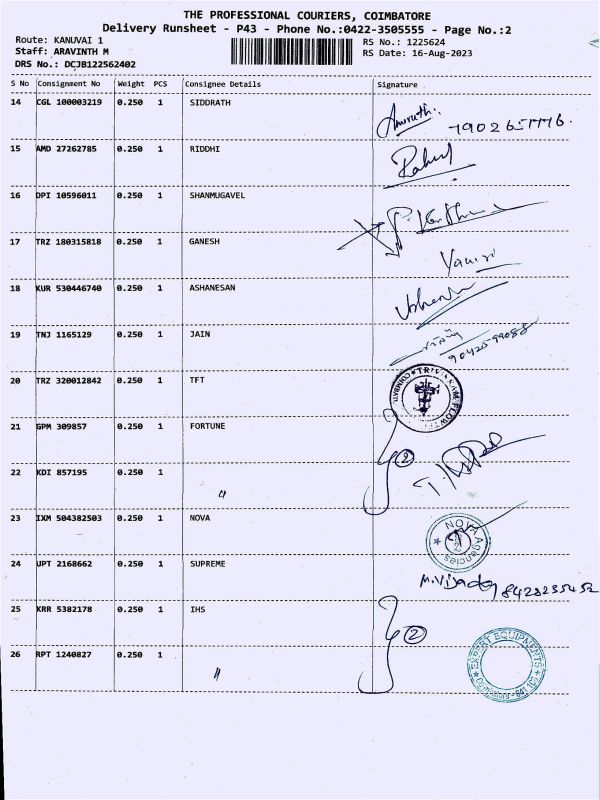 THE PROFESSIONAL COURIERS, COIMBATORE
Delivery Runsheet - P43 - Phone No.:0422-3505555 - Page No.:2
Route: KANUVAI 1
Staff: ARAVINTH M
DRS No.: DCJB122562402
RS No.: 1225624
RS Date: 16-Aug-2023
S No Consignment No Weight PCS Consignee Details Signature
14 CGL 100003219 0.250 1 SIDDRATH
15 AMD 27262785 0.250 1 RIDDHI Rahul
16 DPI 10596011 0.250 1 SHANMUGAVEL
17 TRZ 180315818 0.250 1 GANESH
18 KUR 530446740 0.250 1 ASHANESAN
19 TNJ 1165129 0.250 1 JAIN
9042599088
20 TRZ 320012842 0.250 1 TFT
21 GPM 309857 0.250 1 FORTUNE
22 KDI 857195 0.250 1 "
23 IXM 504382503 0.250 1 NOVA
NOVA Agencies
24 UPT 2168662 0.250 1 SUPREME
25 KRR 5382178 0.250 1 IHS
2
26 RPT 1240827 0.250 1 "
EXPERT EQUIPMENTS